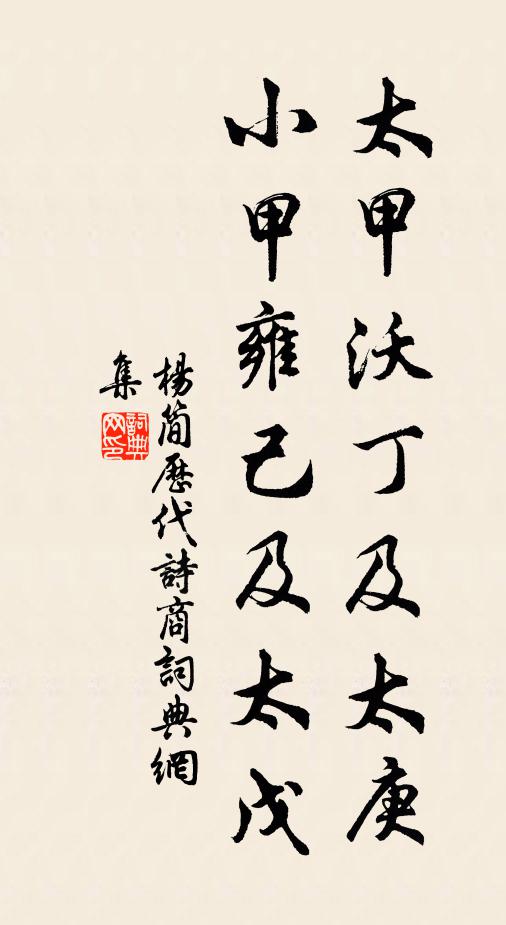 太甲沃丁及太庚
小甲雍己及太戊
楊簡歷代詩商詞典網
集
詞典
网印